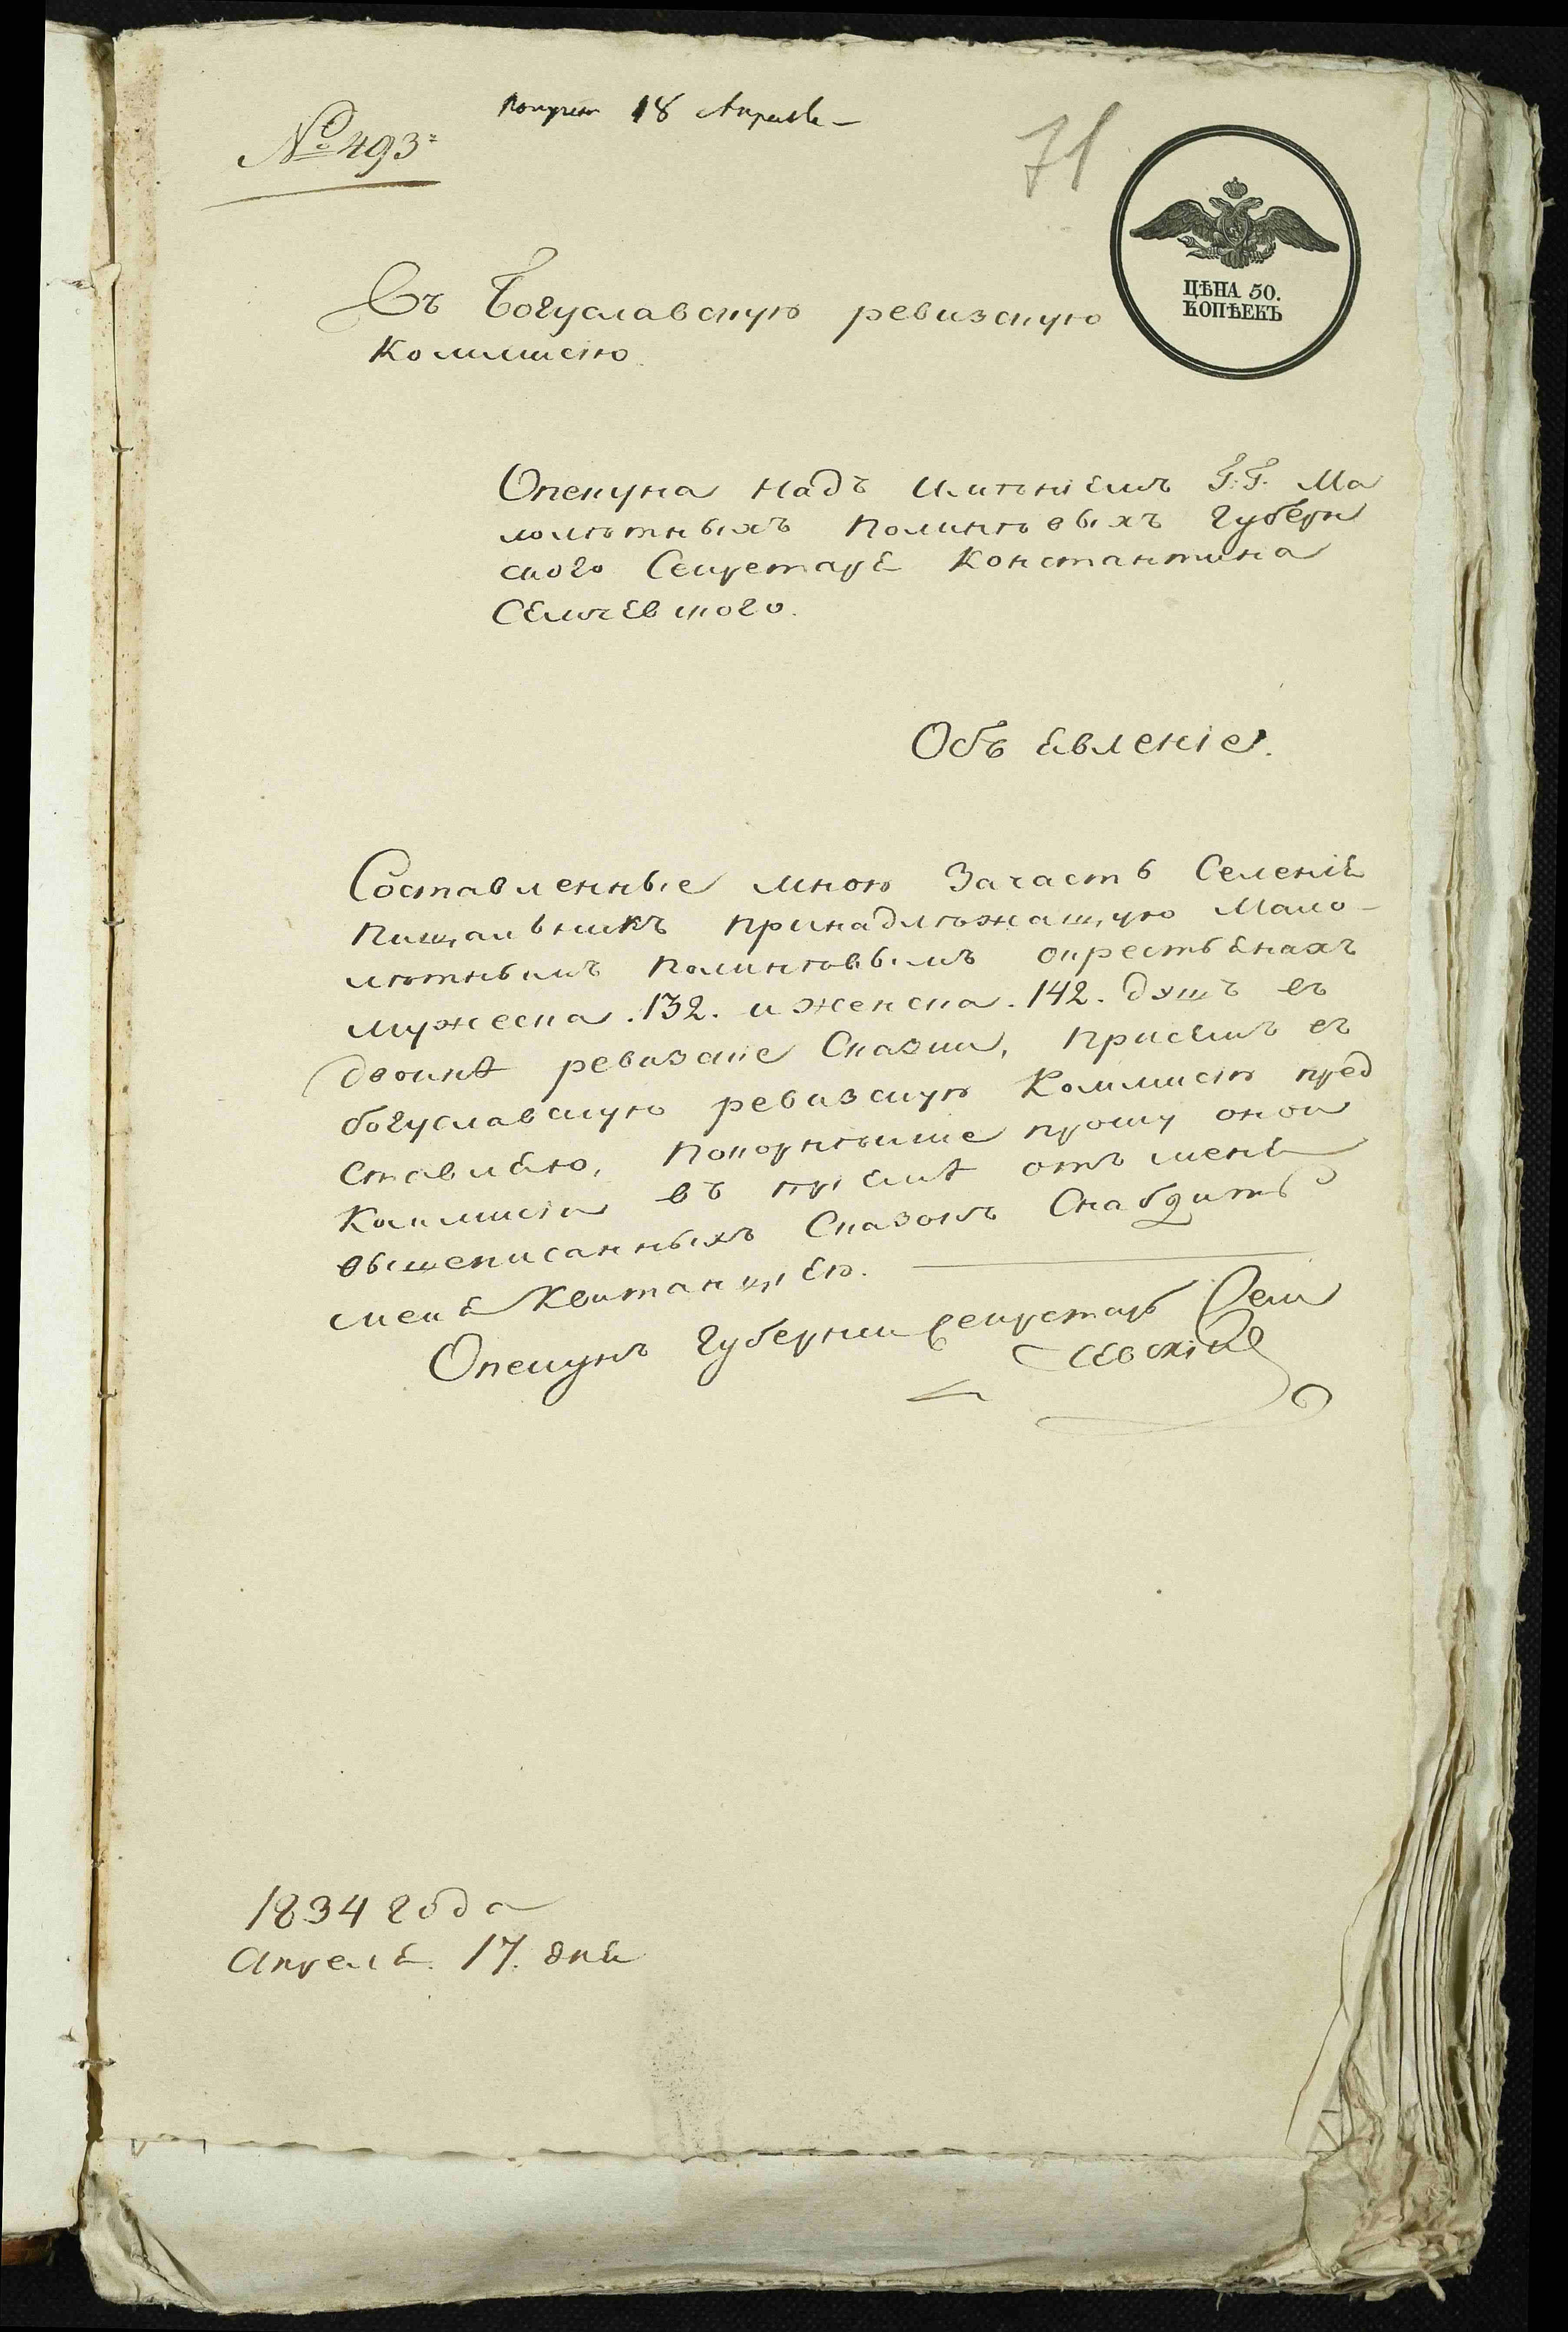 № 493
получен 18 Апреля
71
ЦѢНА 50.
КОПѢЕКЪ
Въ Богуславскую ревизскую
Коммисію
Опекуна надъ имѣніемъ Г:Г: Ма
лолѣтныхъ Полинговыхъ Губерн
ского Секретаря Константина
Семчевского.
Объявленіе.
Составленные мною За часть Селенія
Пищальникъ принадлѣжащую Мало-
лѣтнымъ Полинговымъ окрестьянахъ
мужеска .132. и женска .142. душъ въ
двоинѣ ревизскіе Сказки, присемъ въ
богуславскую ревизскую Коммисію пред
ставляю, Покорнѣйше прошу оной
Коммисіи въ пріемѣ отъ меня
вышеписанныхъ Сказокъ Снабдить
меня Квитанціею.
Опекунъ Губернски Секретарь Сем
чевскій
1834 года
Апреля 17. дня